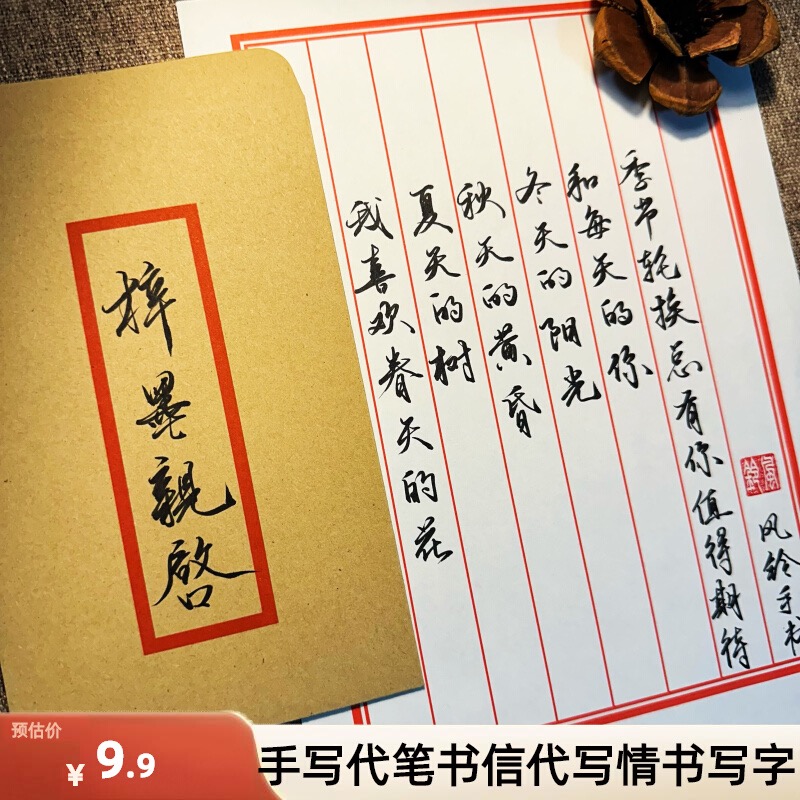 梓墨親啓
我喜欢春天的花
夏天的树
秋天的黄昏
冬天的阳光
和每天的你
季节轮换总有你值得期待
风铃手书
预估价
¥9.9
手写代笔书信代写情书写字